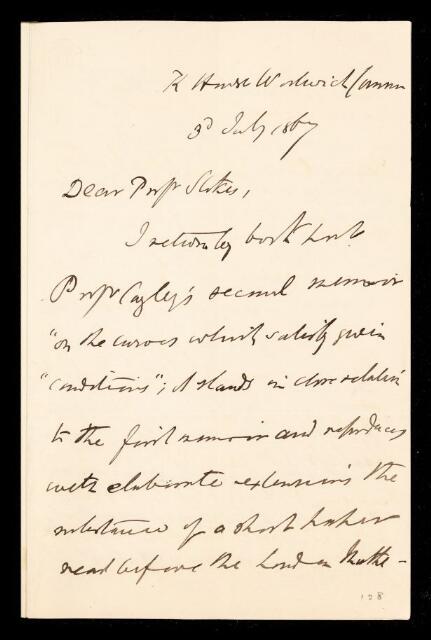 K House Woolwich Common
3d July 1867
Dear Profr Stokes,
I return by book post
Profr Cayley's second memoir
"on the curves which satisfy given
"conditions"; it stands in close relation
to the first memoir and reproduces
with elaborate extensions the
substance of a short paper
read before the London Mathe-
128